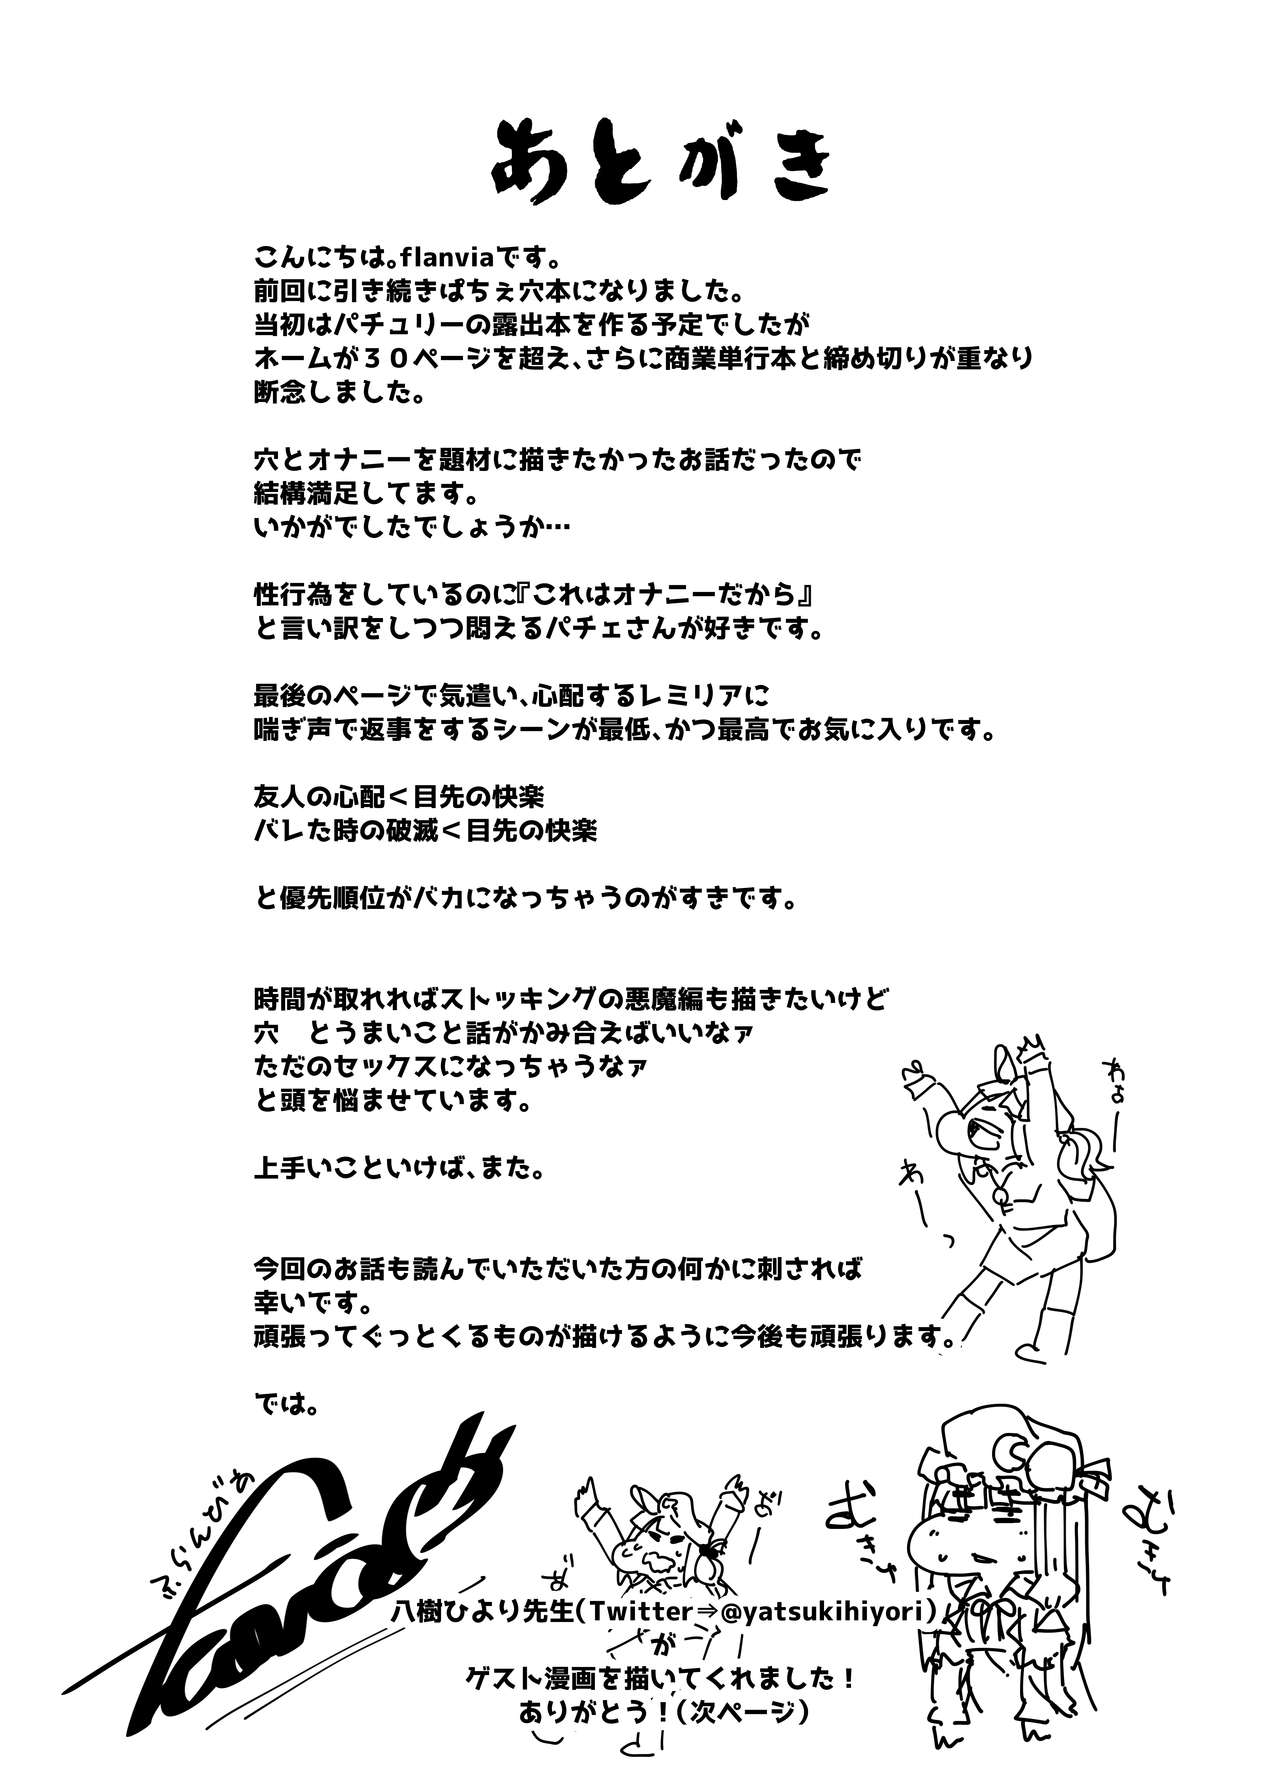 あとがき
こんにちは。flanviaです。
前回に引き続きぱちぇ穴本になりました。
当初はパチュリーの露出本を作る予定でしたが
ネームが３０ページを超え、さらに商業単行本と締め切りが重なり
断念しました。
穴とオナニーを題材に描きたかったお話だったので
結構満足してます。
いかがでしたでしょうか…
性行為をしているのに『これはオナニーだから』
と言い訳をしつつ悶えるパチェさんが好きです。
最後のページで気遣い、心配するレミリアに
喘ぎ声で返事をするシーンが最低、かつ最高でお気に入りです。
友人の心配＜目先の快楽
バレた時の破滅＜目先の快楽
と優先順位がバカになっちゃうのがすきです。
時間が取れればストッキングの悪魔編も描きたいけど
穴　とうまいこと話がかみ合えばいいなァ
ただのセックスになっちゃうなァ
と頭を悩ませています。
上手いこといけば、また。
わよー
わーっ
今回のお話も読んでいただいた方の何かに刺されば
幸いです。
頑張ってぐっとくるものが描けるように今後も頑張ります。
では。
ふらんびあ
むきゅ
むきゅ
八樹ひより先生（Twitter⇒@yatsukihiyori）
が
ゲスト漫画を描いてくれました！
ありがとう！（次ページ）